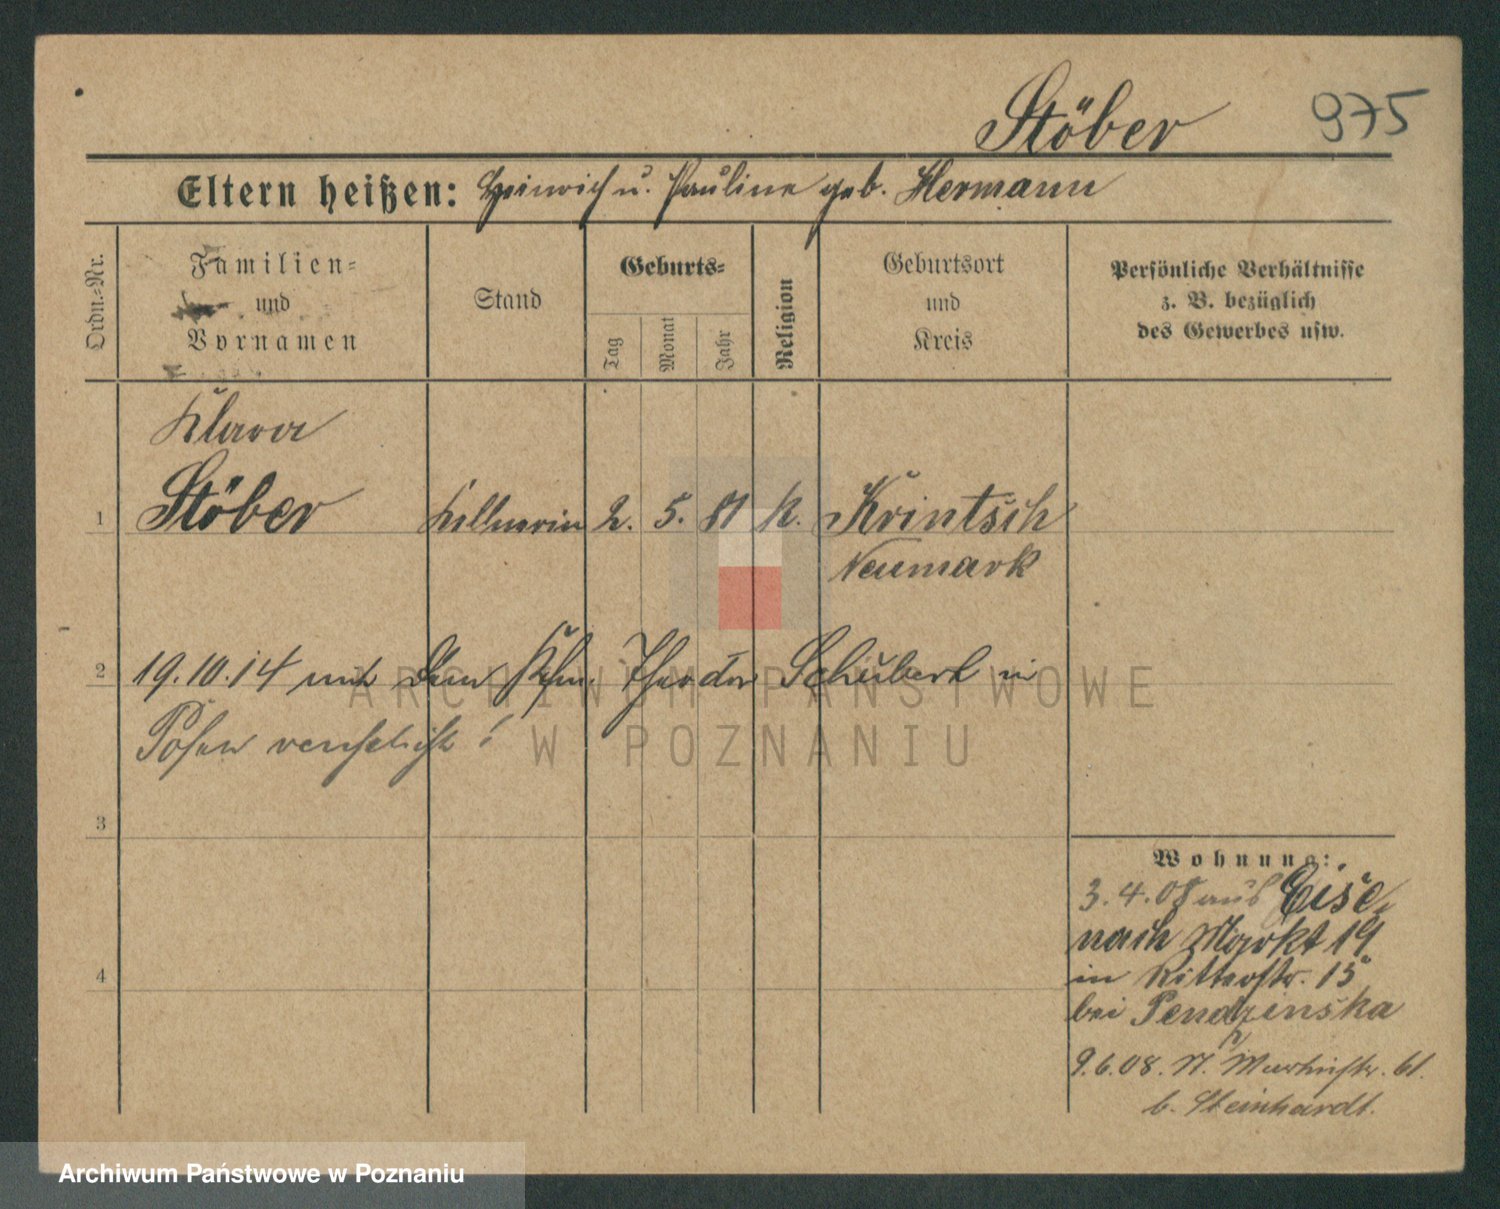 Stöber 975
Eltern heißen: Heinrich u. Pauline geb. Hermann
Ordn.-Nr.
Familien-
und
Vornamen
Stand
Geburts-
Tag
Monat
Jahr
Religion
Geburtsort
und
Kreis
Persönliche Verhältnisse
z. B. bezüglich
des Gewerbes usw.
Klara
1 Stöber Kellnerin 2. 5. 81 k. Krintsch
Neumark
2 19.10.14 mit dem Kfm. Theodor Schubert in
Posen verehelicht!
3
4
Wohnung:
3.4.08 aus Eise-
nach Markt 19
in Ritterstr. 15
bei Pendzinska
9.6.08. N. Martinstr. 61.
b. Steinhardt.
ARCHIWUM PAŃSTWOWE
W POZNANIU
Archiwum Państwowe w Poznaniu